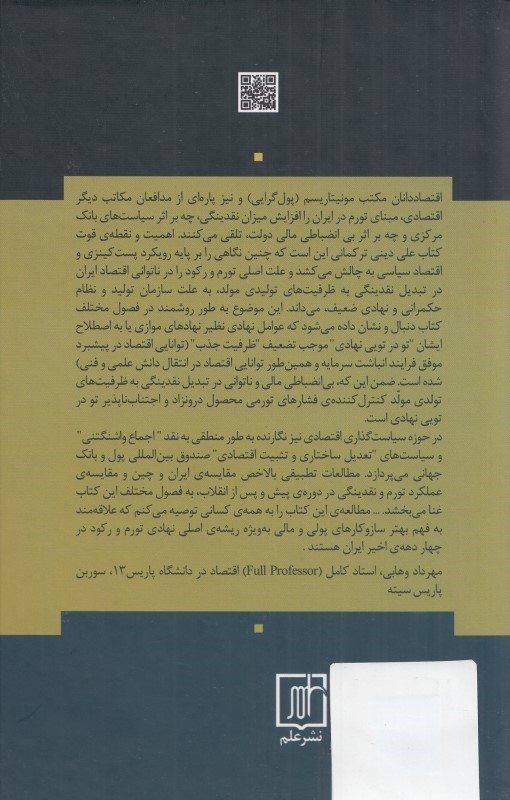 اقتصاددانان مکتب مونیتاریسم (پول‌گرایی) و نیز پاره‌ای از مدافعان مکاتب دیگر
اقتصادی، مبنای تورم در ایران را افزایش میزان نقدینگی، چه بر اثر سیاست‌های بانک
مرکزی و چه بر اثر بی انضباطی مالی دولت، تلقی می‌کنند. اهمیت و نقطه‌ی قوت
کتاب علی دینی ترکمانی این است که چنین نگاهی را بر پایه رویکرد پست‌کینزی و
اقتصاد سیاسی به چالش می‌کشد و علت اصلی تورم و رکود را در ناتوانی اقتصاد ایران
در تبدیل نقدینگی به ظرفیت‌های تولیدی مولد، به علت سازمان تولید و نظام
حکمرانی و نهادی ضعیف، می‌داند. این موضوع به طور روشمند در فصول مختلف
کتاب دنبال و نشان داده می‌شود که عوامل نهادی نظیر نهادهای موازی یا به اصطلاح
ایشان "تو در تویی نهادی" موجب تضعیف "ظرفیت جذب" (توانایی اقتصاد در پیشبرد
موفق فرایند انباشت سرمایه و همین‌طور توانایی اقتصاد در انتقال دانش علمی و فنی)
شده است. ضمن این که، بی‌انضباطی مالی و ناتوانی در تبدیل نقدینگی به ظرفیت‌های
تولدی مولّد کنترل‌کننده‌ی فشارهای تورمی محصول درونزاد و اجتناب‌ناپذیر تو در
تویی نهادی است.
در حوزه سیاست‌گذاری اقتصادی نیز نگارنده به طور منطقی به نقد "اجماع واشنگتنی"
و سیاست‌های "تعدیل ساختاری و تثبیت اقتصادی" صندوق بین‌المللی پول و بانک
جهانی می‌پردازد. مطالعات تطبیقی بالاخص مقایسه‌ی ایران و چین و مقایسه‌ی
عملکرد تورم و نقدینگی در دوره‌ی پیش و پس از انقلاب، به فصول مختلف این کتاب
غنا می‌بخشد. ... مطالعه‌ی این کتاب را به همه‌ی کسانی توصیه می‌کنم که علاقه‌مند
به فهم بهتر سازوکارهای پولی و مالی به‌ویژه ریشه‌ی اصلی نهادی تورم و رکود در
چهار دهه‌ی اخیر ایران هستند.
مهرداد وهابی، استاد کامل (Full Professor) اقتصاد در دانشگاه پاریس ۱۳، سوربن
پاریس سیته
نشر علم